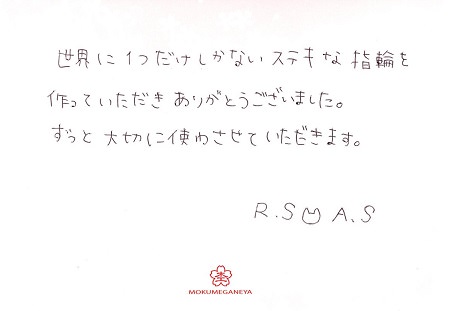 世界に1つだけしかないステキな指輪を
作っていただきありがとうございました。
ずっと大切に使わさせていただきます。
R.S A.S
MOKUMEGANEYA